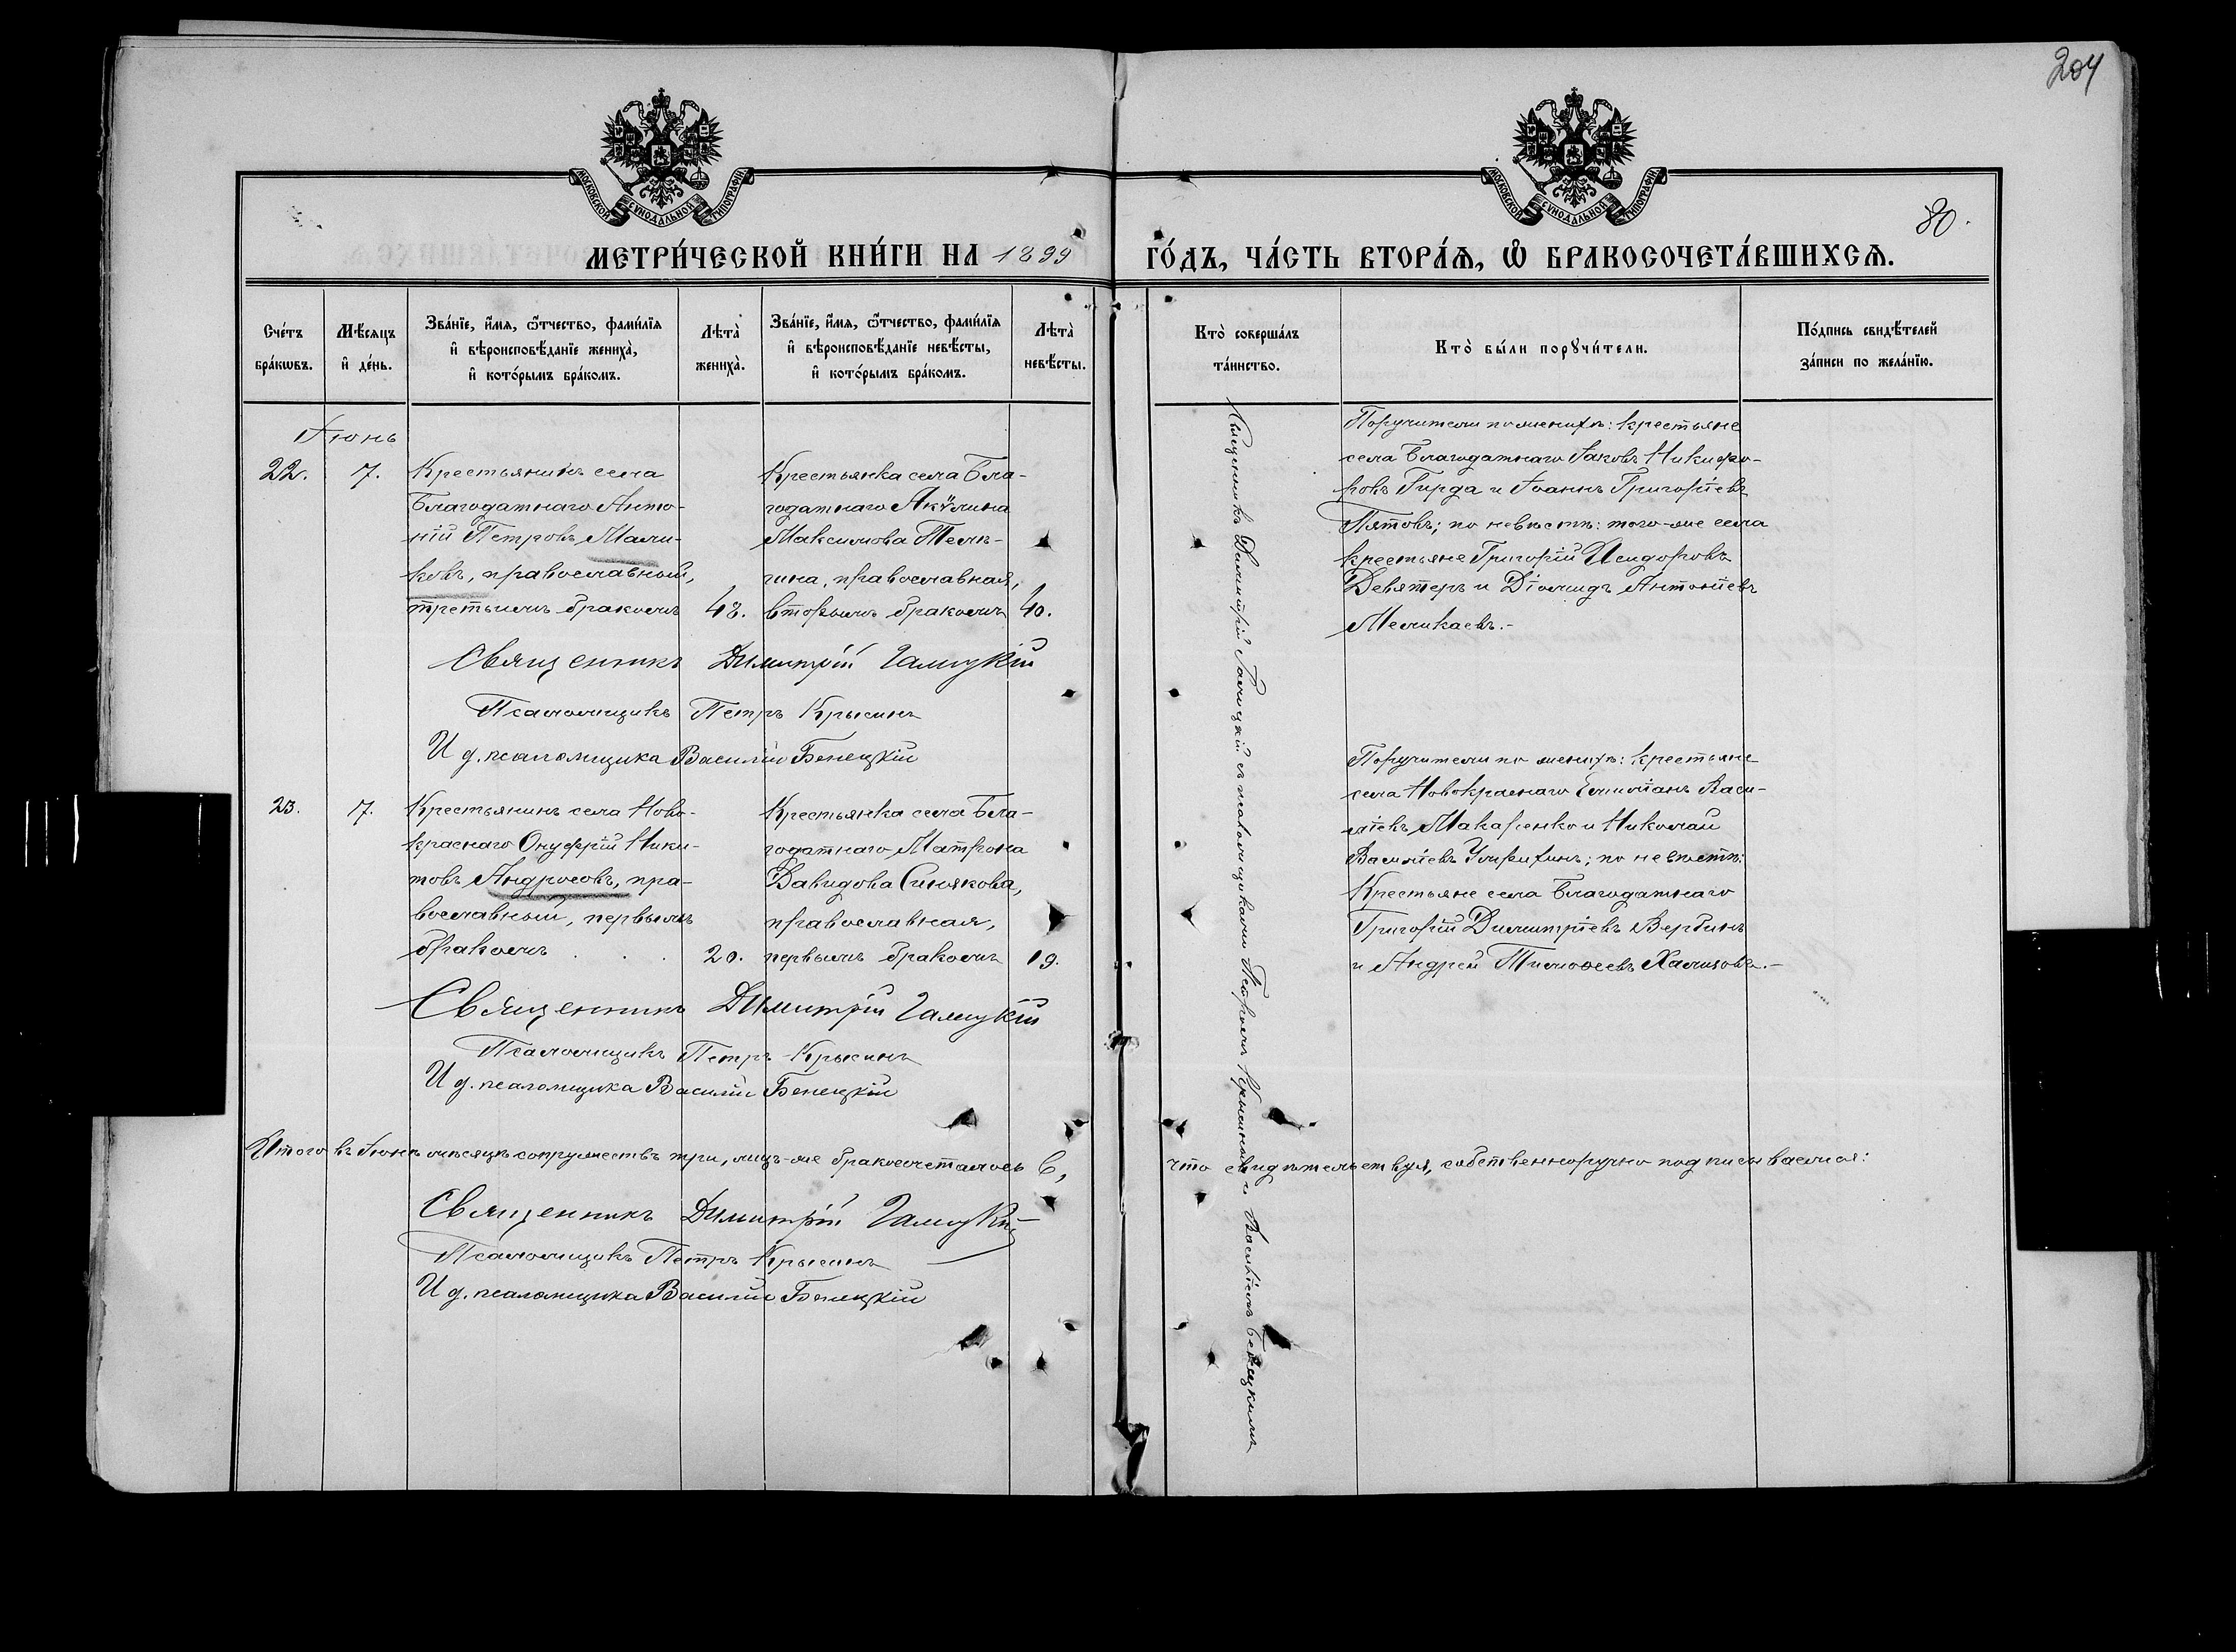 204
МОСКОВСКОЙ СѴНОДАЛЬНОЙ ТИПОГРАФІИ
МОСКОВСКОЙ СѴНОДАЛЬНОЙ ТИПОГРАФІИ
80.
МЕТРИ́ЧЕСКОЙ КНИ́ГИ НА 1899 ГО́ДЪ, ЧА́СТЬ ВТОРА́Ѧ, Ѡ҆ БРАКОСОЧЕТА́ВШИХСѦ.
Сче́тъ
бра́кѡвъ.
Мѣ́сяцъ
и҆ де́нь.
Зва́нїе, и҆́мѧ, ѻ҆́тчество, фамі́лїѧ
и҆ вѣроисповѣ́данїе жениха̀,
и҆ кото́рымъ бра́комъ.
Лѣта̀
жениха̀.
Зва́нїе, и҆́мѧ, ѻ҆́тчество, фамі́лїѧ
и҆ вѣроисповѣ́данїе невѣ́сты,
и҆ кото́рымъ бра́комъ.
Лѣта̀
невѣ́сты.
Кто̀ соверша́лъ
та́инство.
Кто̀ бы́ли порꙋчи́тели.
По́дпись свидѣ́телей
за́писи по жела́нїю.
Іюнь
22. 7.
Крестьянинъ села
Благодатнаго Анто-
ній Петровъ Мали-
ковъ, православный,
третьимъ бракомъ 48.
Крестьянка села Бла-
годатнаго Акулина
Максимова
православная,
вторымъ бракомъ 40.
Поручители по женихѣ: крестьяне
села Благодатнаго Іаковъ Никифо-
ровъ Гирда и Іоаннъ Григоріевъ
Пятовъ; по невѣстѣ: того-же села
крестьяне Григорій Исидоровъ
Девятеръ и Діомидъ Антоніевъ
Меликаевъ.-
Священникъ Димитрій Галицкій
Псаломщикъ Петръ Крысинъ
И д. псаломщика Василій Бенецкій
23. 7.
Крестьянинъ села Ново-
краснаго Онуфрій Ники-
товъ Андросовъ, пра-
вославный, первымъ
бракомъ . . . 20.
Крестьянка села Бла-
годатнаго Матрона
Давидова Синякова,
православная,
первымъ бракомъ 19.
Поручители по женихѣ: крестьяне
села Новокраснаго Емиліанъ Васи-
ліевъ Макаренко и Николай
Василіевъ по невѣстѣ:
Крестьяне села Благодатнаго
Григорій Димитріевъ Вербинъ
и Андрей Тимоѳеевъ Халиковъ.-
Священникъ Димитрій Галицкій
Псаломщикъ Петръ Крысинъ
И д. псаломщика Василій Бенецкій
Священникъ Димитрій Галицкій съ псаломщиками Петромъ Крысинымъ и Василіемъ Бенецкимъ
Итого въ Іюнѣ мѣсяцѣ супружествъ три, лицъ-же бракосочеталось 6, что свидѣтельствуя, собственноручно подписываемся:
Священникъ Димитрій Галицкій
Псаломщикъ Петръ Крысинъ
И д. псаломщика Василій Бенецкій